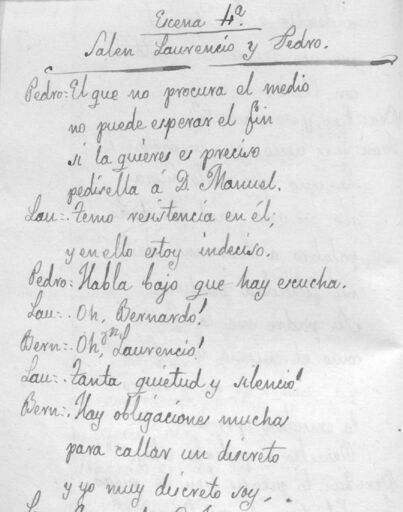 Escena 4ª.
Salen Laurencio y Pedro.
Pedro: El que no procura el medio
no puede esperar el fin
si la quieres es preciso
pedirsella á D. Manuel.
Lau:. Temo resistencia en él;
y en ello estoy indeciso.
Pedro: Habla bajo que hay escucha.
Lau:. Oh, Bernardo!
Bern:. Oh, Laurencio!
Lau:. Tanta quietud y silencio!
Bern:. Hay obligaciones mucha
para callar un discreto
y yo muy discreto soy.